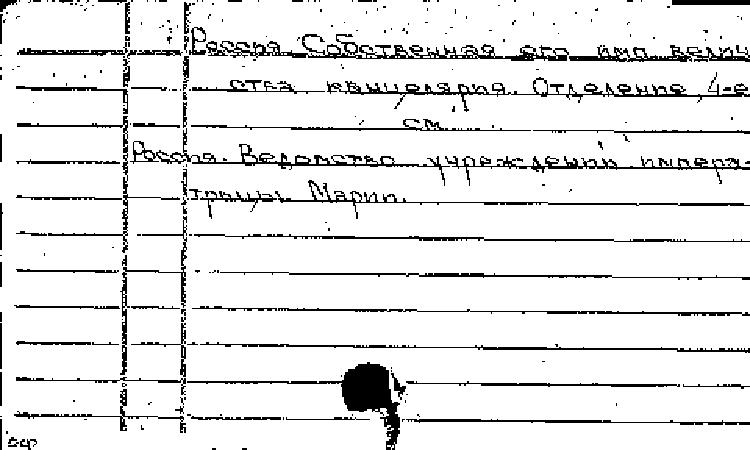 Россия. Собственная его имп. велич
ства канцелярия. Отделение 4-е
см.
Россия. Ведомство учреждений импера-
трицы Марии.